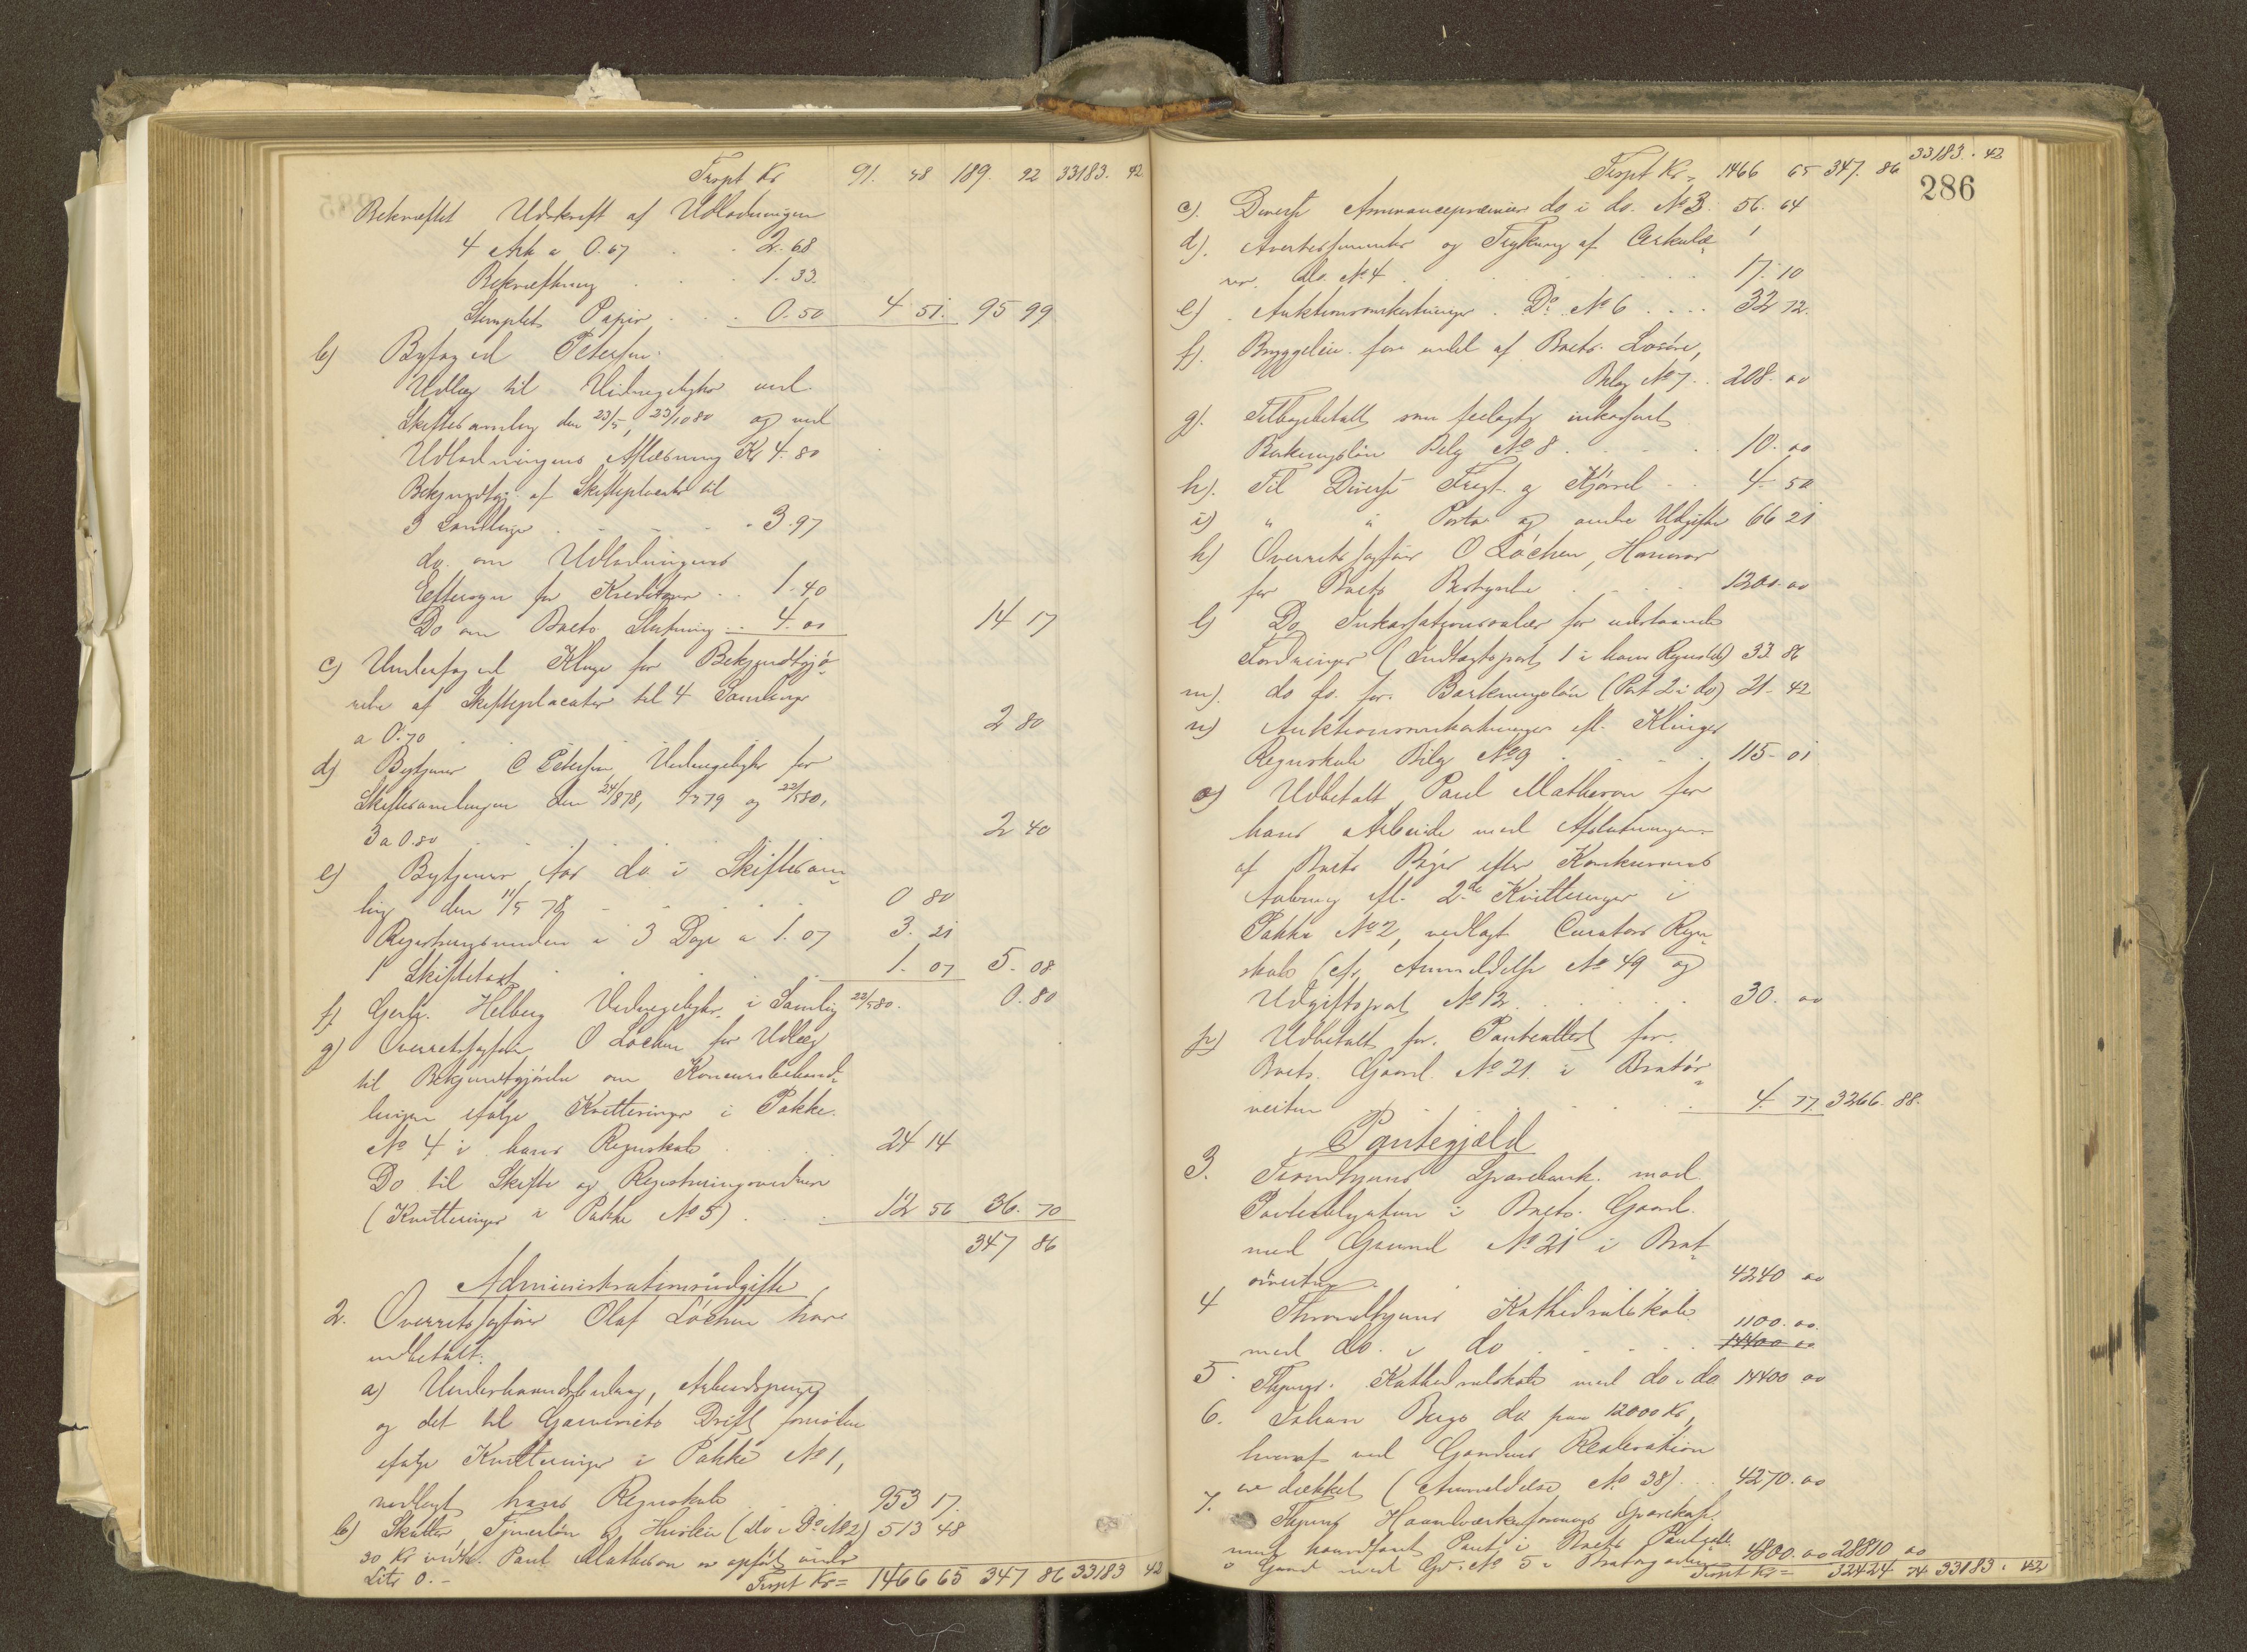 Trspt Kr 91. 48 189. 92 33183. 42
Bekræftet Udskrift af Udlodningen
4 Ark a 0.67 . . 2.68
Bekræftning . . . 1.33.
Stemplet Papir . . . 0.50 4 51. 95 99
b) Byfoged Petersen:
Udlæg til Vidnegebyhr ved
Skiftesamling den 23/5, 23/10 80 og ved
Udlodningens Aflæsning Kr 4.80
Bekjendtgj. af Skifteplacater til
3 Samlinger . . . 3.97
do. om Udlodningens
Eftersyn for Kreditorer . . 1.40
Do om Boets Slutning . . 4.00 14 17
c) Underfoged Kluge for Bekjendtgjø-
relse af Skifteplacater til 4 Samlinger
a 0.70 . . . 2 80
d) Bytjener C Petersen Vidnegebyhr for
Skiftesamlingen den
3 a 0.80 . . . 2 40
e) Bytjener do. i Skiftesam-
ling den 11/5 78 . . . 0 80
Registreringsvidne i 3 Dage a 1.07 3. 21
1 Skiftetaxt . . . 1. 07 5. 08
f) Helberg Vidnegebyhr i Samling 22/5 80. 0.80
g) Overretssagfører O Løchen for Udlæg
til Bekjendtgjørelse om Concursbehand-
lingen ifølge Kvitteringer i Pakke
No 4 i hans Regnskab . . 24 14
Do til Skifte og Registreringsvidner
(Kvitteringer i Pakke No 5) . . . 12 56 36. 70
347 86
Administrationsudgifter
2. Overretssagfører Olaf Løchen har
udbetalt:
a) Underholdsbidrag, Arbeidspenge
og det til Garveriets Drift fornødne
ifølge Kvitteringer i Pakke No 1,
vedlagt hans Regnskab . . . 953 17.
b) Skatter, Tjenerløn og Husleie (do i Do No 2) 513 48
30 Kr Paul Matheson er opført under
Litr 0. - Trspt Kr = 1466 65 347 86 33183 42
Trspt Kr = 1466 65 347. 86 33183. 42
286
c). Diverse Assurancepræmier do i do. No 3. 56. 64
d). Avertissementer og Trykning af Cirkulæ-
rer do. No 4 . . . 17. 10
e) . Auktionsomkostninger . Do . No 6 . . . . 32 72.
f). Bryggeleie for endel af Boets Løsøre,
Bilag No 7 . . 208. 00
g). Tilbagebetalt som feilagtig inkasseret
Barkningsløn Bilag No 8 . . . 10. 00
h). Til Diverse Fragt og Kjørsel . . 4. 50
i) " " Porto og andre Udgifter 66 21
k) Overretssagfører O Løchen, Honorar
for Boets Bestyrelse . . . 1200. 00
l) Do Inkassationssalær for udestaaende
Fordringer (Indtægtspost 1 i hans Regnskab) 33. 86
m). do do. for Barkningsløn (Post 2 i do) 21. 42
n) Auktionsomkostninger efl. Klinges
Regnskab Bilag No 9 . . . 115. 01
o) Udbetalt Paul Matheson for
hans Arbeide med Afslutningen
af Boets Bøger efter Konkursens
Aabning efl. 2de Kvitteringer i
Pakke No 2, vedlagt Curators Regn-
skab (cfr. Anmeldelse No 49 og
Udgiftspost No 12 . . . 30. 00
p) Udbetalt for Panteattest for
Boets Gaard No 21 i Bratør-
veiten . . . 4. 77. 3266. 88.
Pantegjæld
3. Trondhjems Sparebank mod
Panteobligation i Boets Gaard
med Grund No 21 i Brat-
ørveiten . . . 4240 00
4 Throndhjems Kathedralskole 1100. 00.
med do. i do . . . 14400 00
5. Thjems Kathedralskole med do i do 14400 00
6. Johan Berg do paa 12000 Kr,
hvoraf ved Gaardens Realisation
er dækket (Anmeldelse No 38) . . 4270. 00
7. Thjems Haandværkerforenings Sparekasse
med Pant i Boets
i Gaard med Gr. No 5 i 4800. 00 28810 00
Trspt Kr = 32424 74 33183. 42